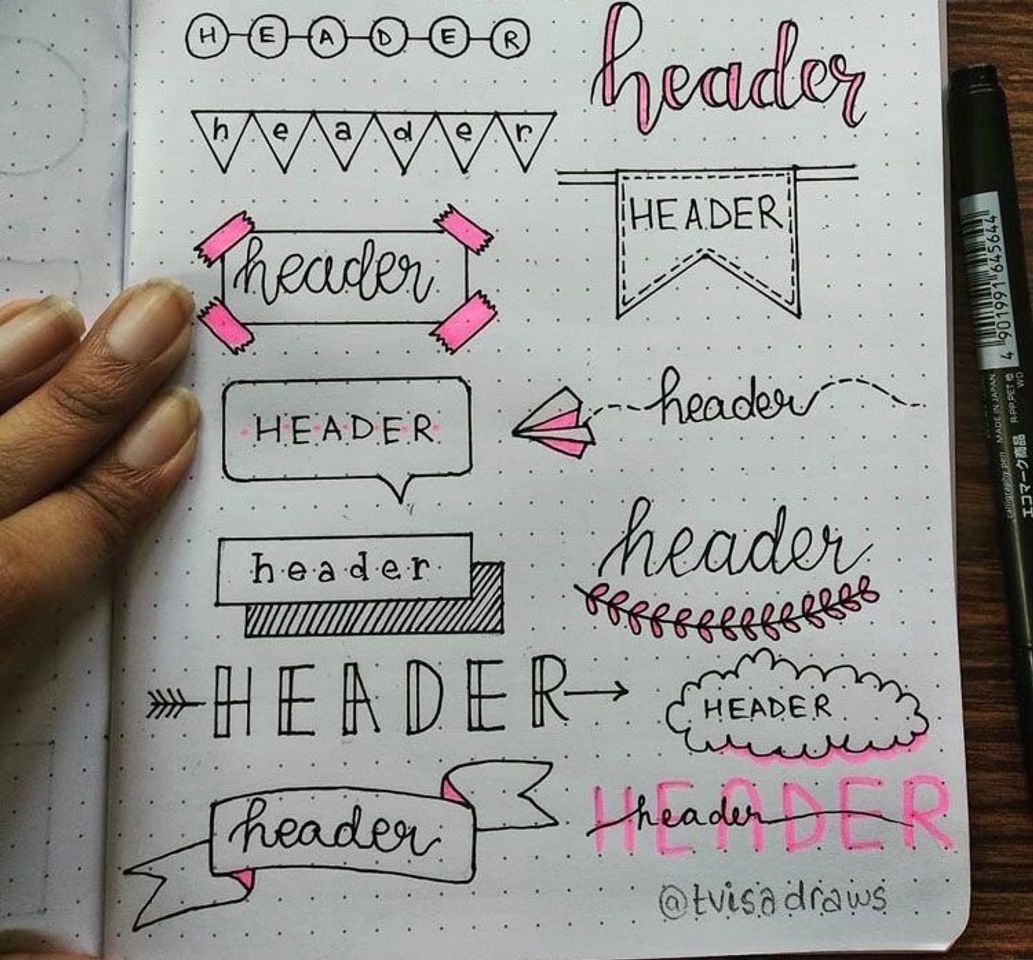 HEADER
header
header
HEADER
header
HEADER
header
header
header
HEADER
HEADER
header
HEADER
header
@tvisadraws
4 901991 645644
MADE IN JAPAN
calligraphy pen
エコマーク商品